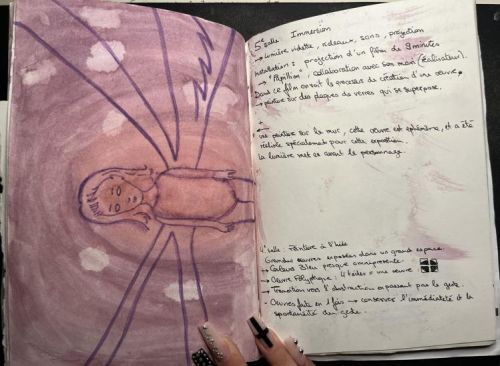 5e salle : Immersion
→ Lumière violette, rideaux, sons, projection
Installation : projection d'un film de 9 minutes
→ "Papillon" collaboration avec son mari (réalisateur).
Dans ce film on voit le processus de création d'une œuvre
→ peinture sur des plaques de verres qui se superpose.
+
une peinture sur le mur, cette œuvre est éphémère, et a été
réalisée spécialement pour cette exposition.
la lumière met en avant le personnage.
4e salle : Peinture à l'huile
Grandes œuvres exposées dans un grand espace
→ Couleurs Bleu presque omniprésente
→ Œuvre Polyptique : 4 toiles = une œuvre
→ Transition vers l'abstraction en passant par le geste.
- Œuvres faite en 1 fois → conserver l'immédiateté et la
spontanéité du geste.